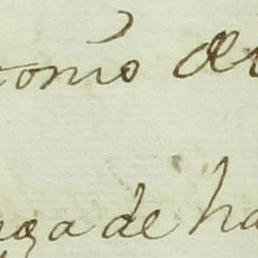 tonio de
nga de ha